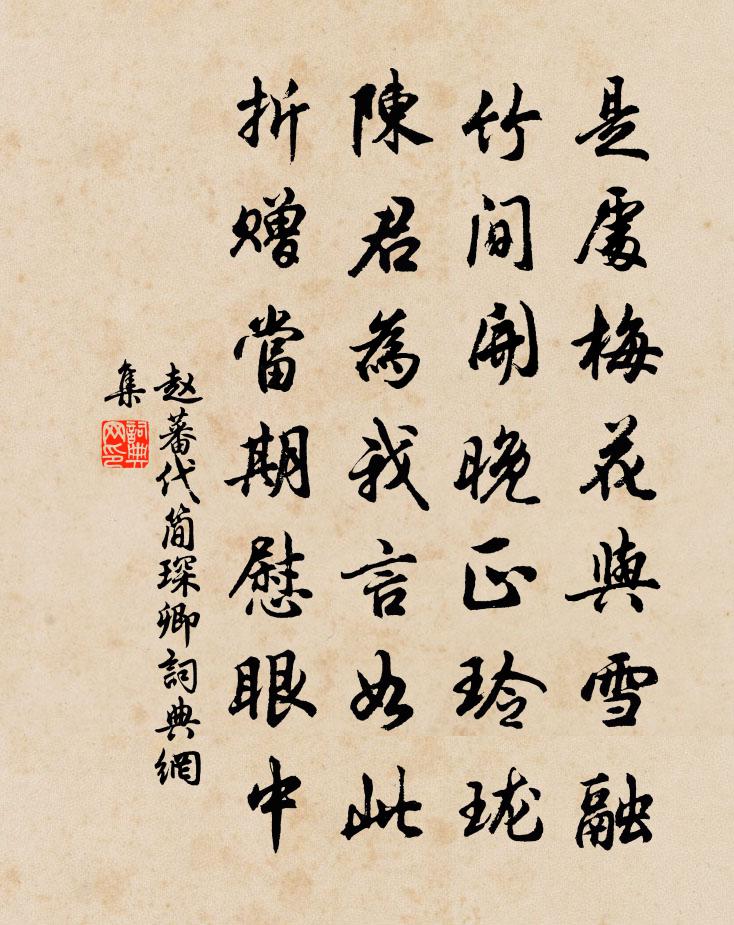 是處梅花與雪融
竹间開晚正玲珑
陳君為我言如此
折赠當期慰眼中
赵蕃代简琛卿詞典網
集
詞典网印